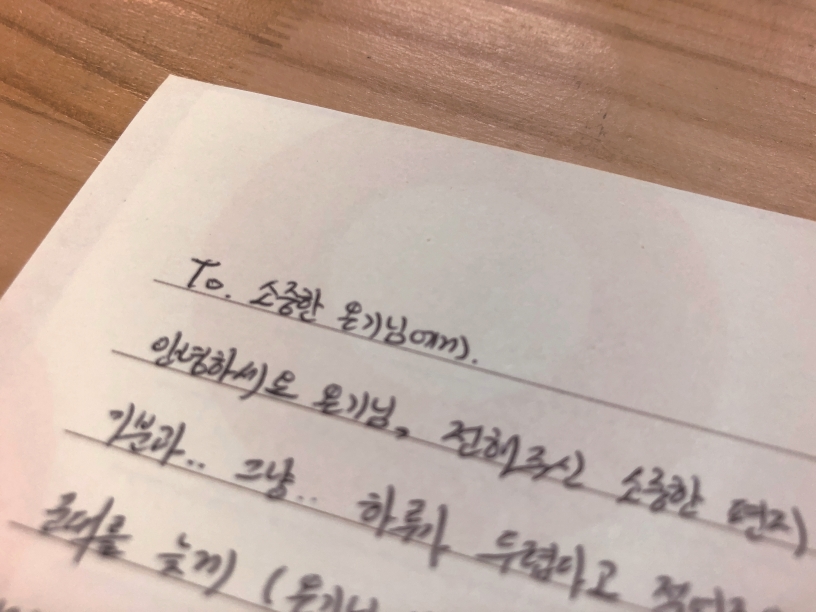 To. 소중한 온기님에게.
안녕하세요 온기님, 전해주신 소중한 편지
기분과.. 그냥.. 하루가 두렵다고
늦게 (온기님